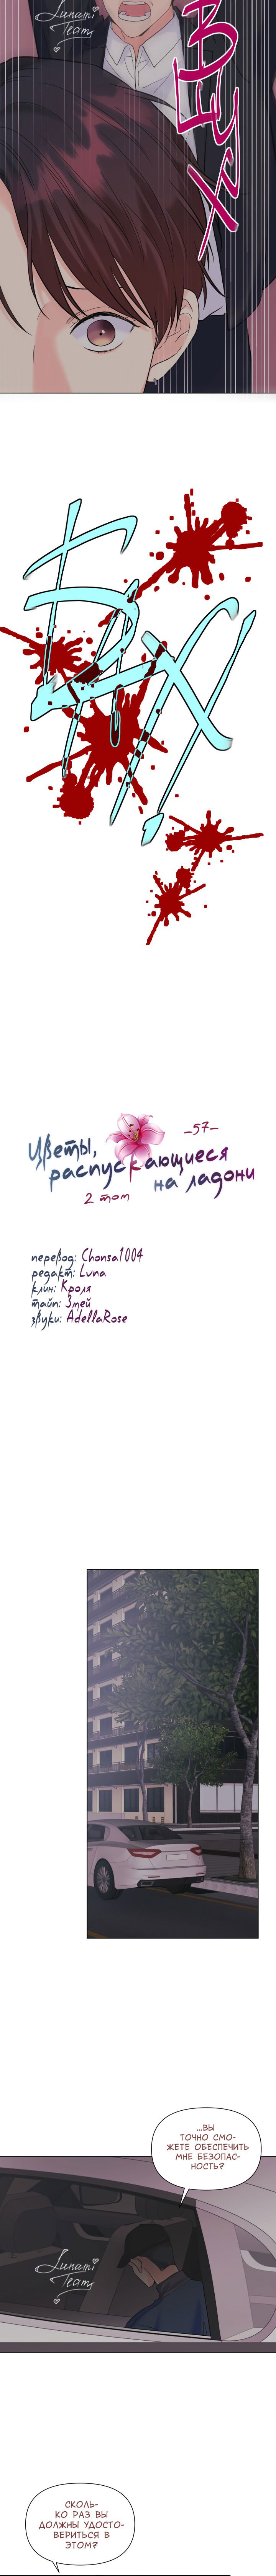 Lunami
Team
ВШХ
БАХ
Цветы,
распускающиеся
на ладони
–57–
2 том
перевод: Chonsa1004
редакт: Luna
клин: Кроля
тайп: Змей
звуки: AdellaRose
...ВЫ
ТОЧНО СМО-
ЖЕТЕ ОБЕСПЕЧИТЬ
МНЕ БЕЗОПАС-
НОСТЬ?
Lunami
Team
СКОЛЬ-
КО РАЗ ВЫ
ДОЛЖНЫ УДОСТО-
ВЕРИТЬСЯ В
ЭТОМ?